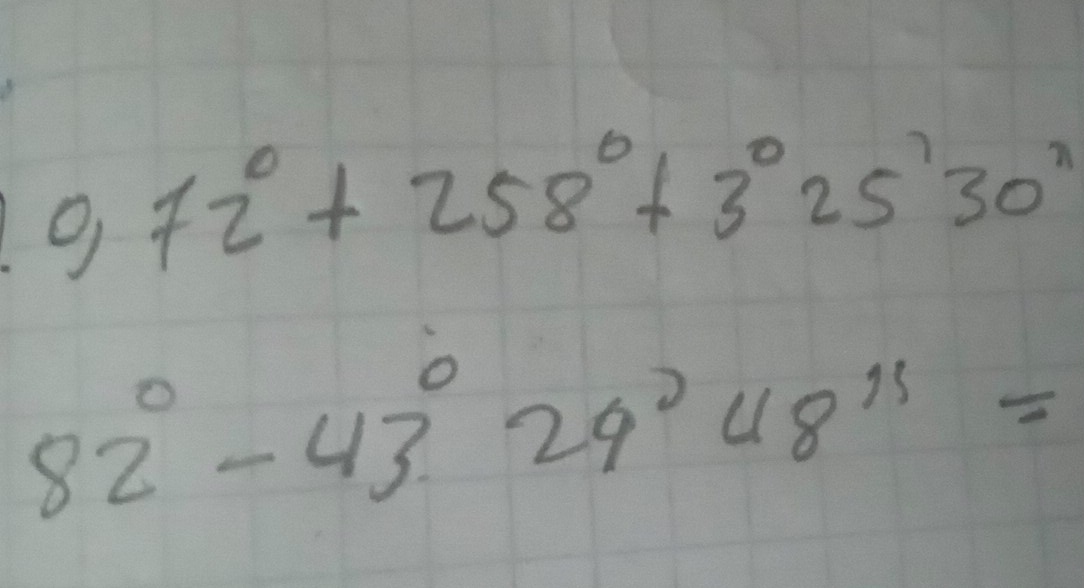 0,72° + 258° + 3° 25' 30"
82° - 43° 29' 48" =